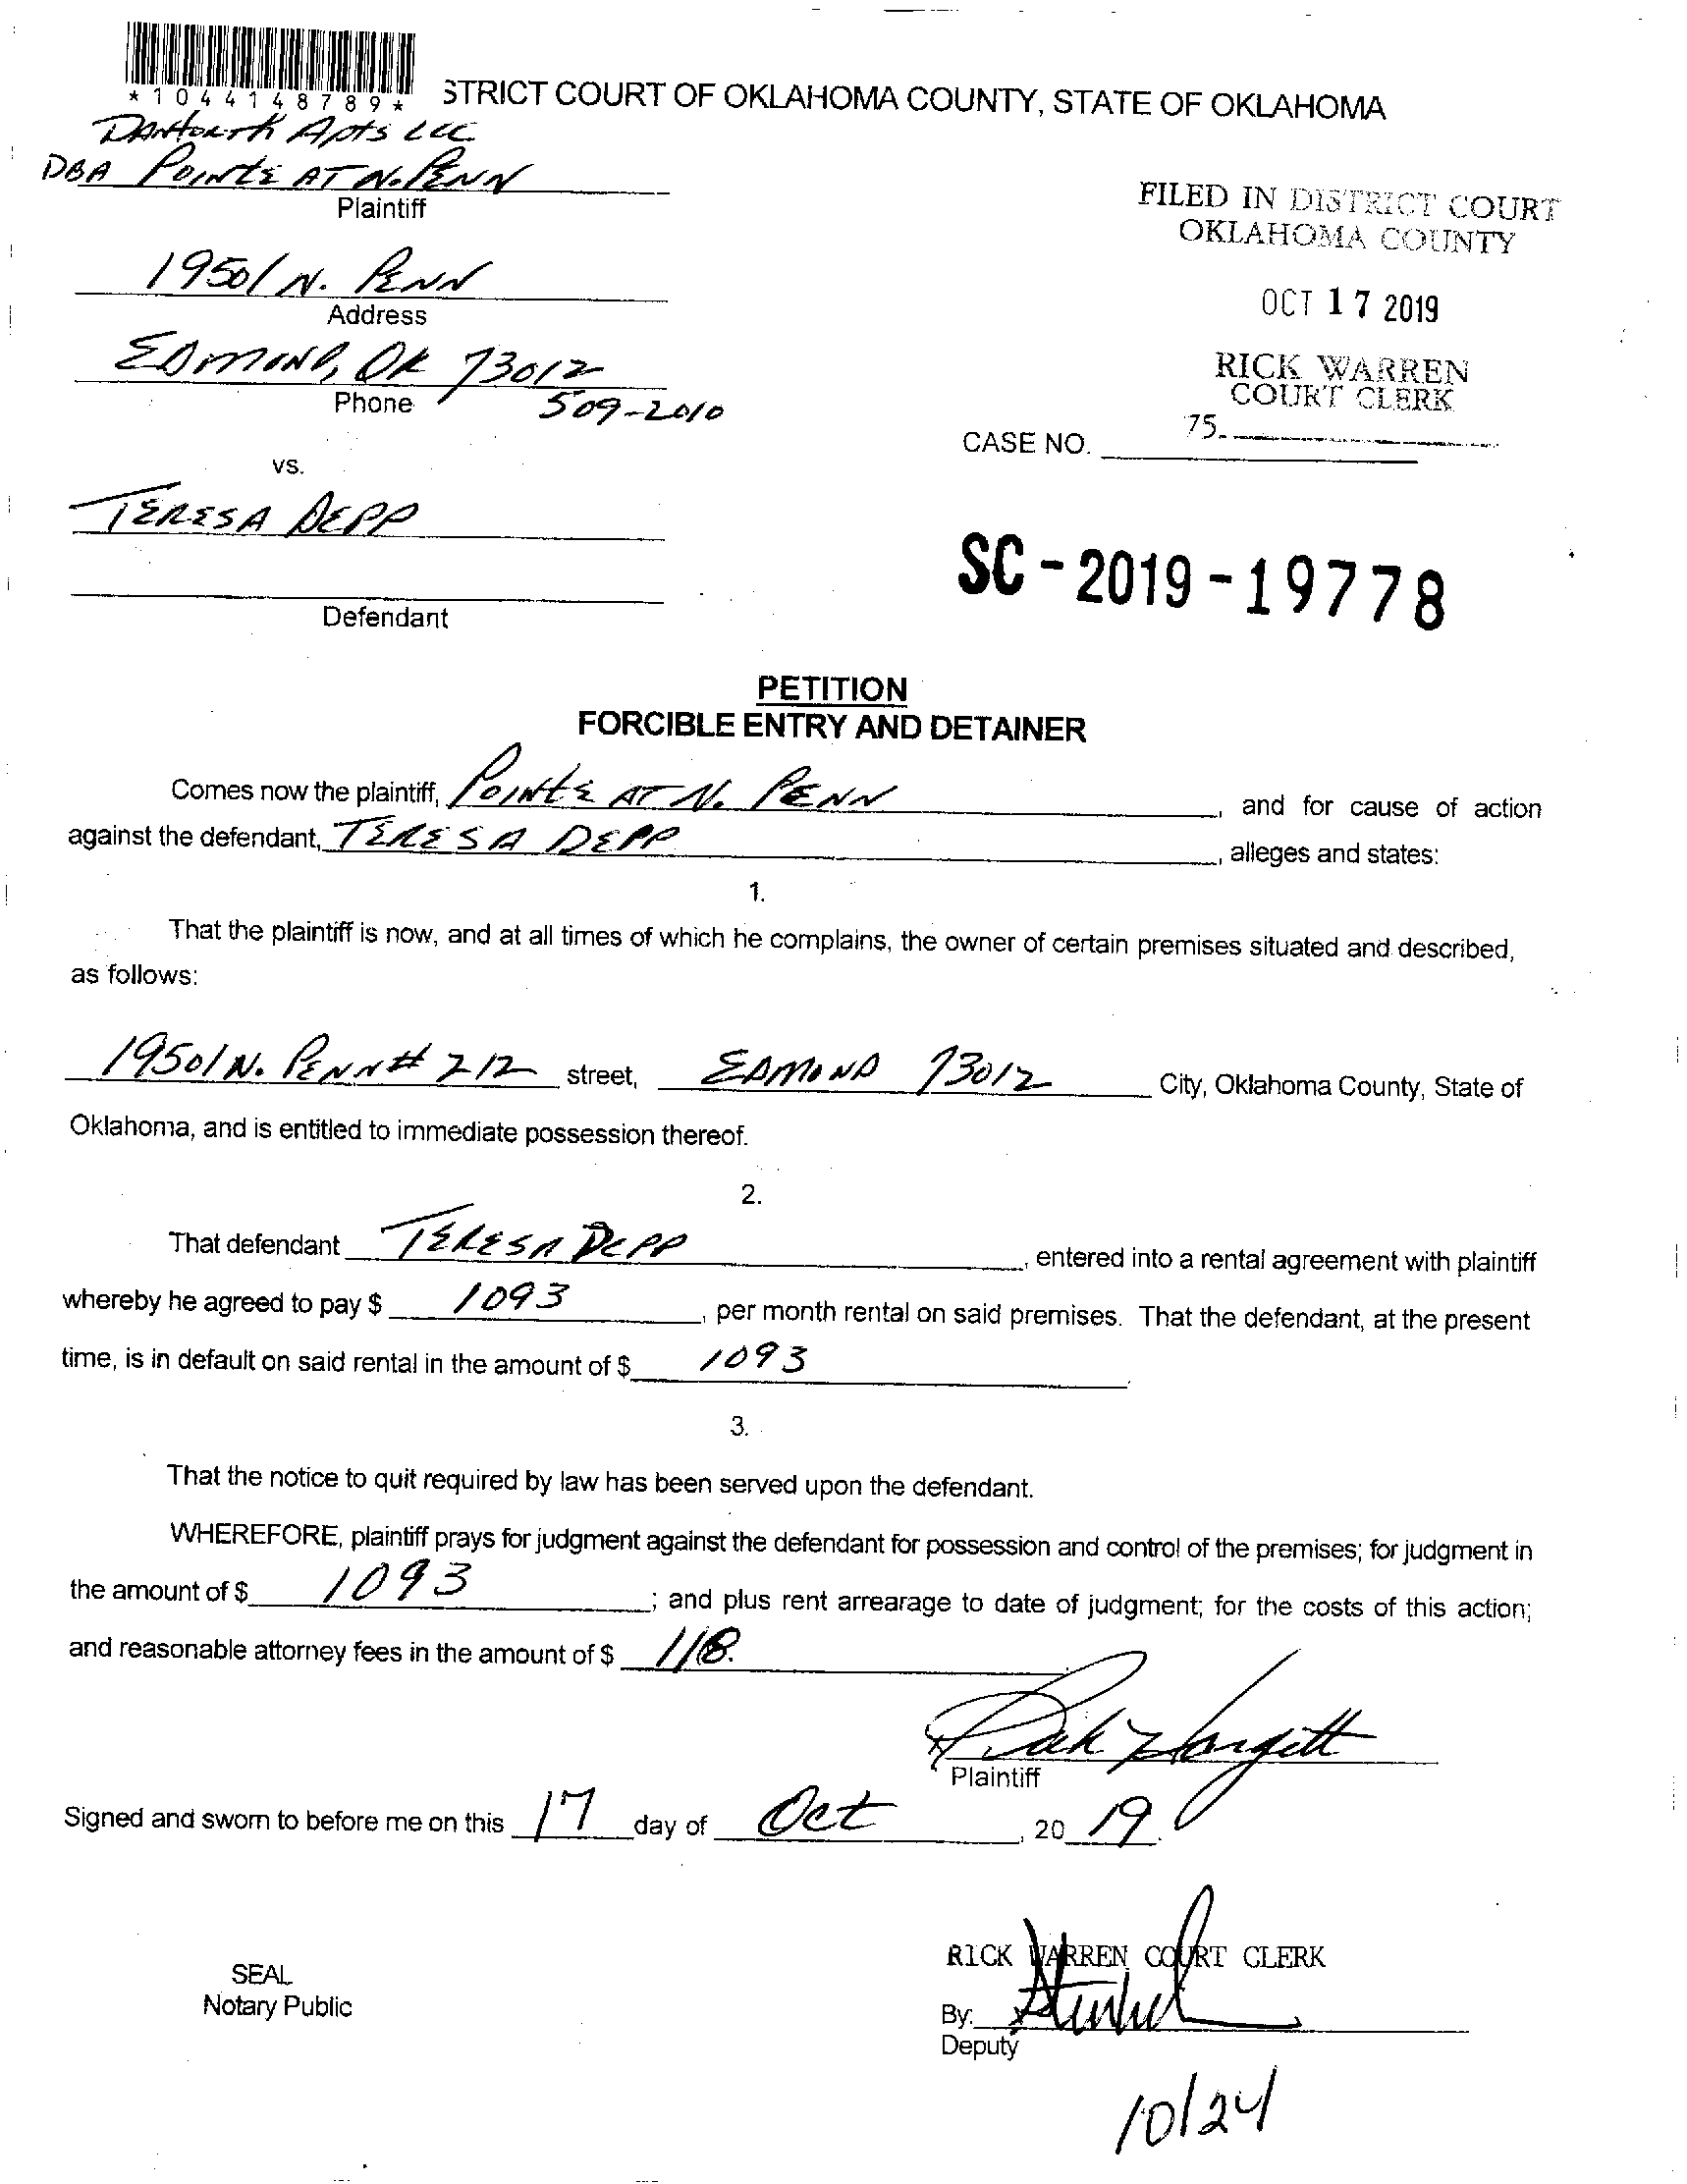 *1044148789*
STRICT COURT OF OKLAHOMA COUNTY, STATE OF OKLAHOMA
DANFORTH APTS LLC
DBA POINTE AT N. PENN
Plaintiff
FILED IN DISTRICT COURT
OKLAHOMA COUNTY
19501 N. PENN
Address
OCT 17 2019
EDMOND, OK 73012
RICK WARREN
COURT CLERK
Phone 509-2010
75
CASE NO.
vs.
TERESA DEPP
SC-2019-19778
Defendant
PETITION
FORCIBLE ENTRY AND DETAINER
Comes now the plaintiff, POINTE AT N. PENN, and for cause of action
against the defendant, TERESA DEPP, alleges and states:
1.
That the plaintiff is now, and at all times of which he complains, the owner of certain premises situated and described,
as follows:
19501 N. PENN # 212 street, EDMOND 73012 City, Oklahoma County, State of
Oklahoma, and is entitled to immediate possession thereof.
2.
That defendant TERESA DEPP, entered into a rental agreement with plaintiff
whereby he agreed to pay $ 1093, per month rental on said premises. That the defendant, at the present
time, is in default on said rental in the amount of $ 1093
3.
That the notice to quit required by law has been served upon the defendant.
WHEREFORE, plaintiff prays for judgment against the defendant for possession and control of the premises; for judgment in
the amount of $ 1093; and plus rent arrearage to date of judgment; for the costs of this action;
and reasonable attorney fees in the amount of $ 118.
Plaintiff
Signed and sworn to before me on this 17 day of Oct, 20 19.
RICK WARREN COURT CLERK
SEAL
Notary Public
By:
Deputy
10/24